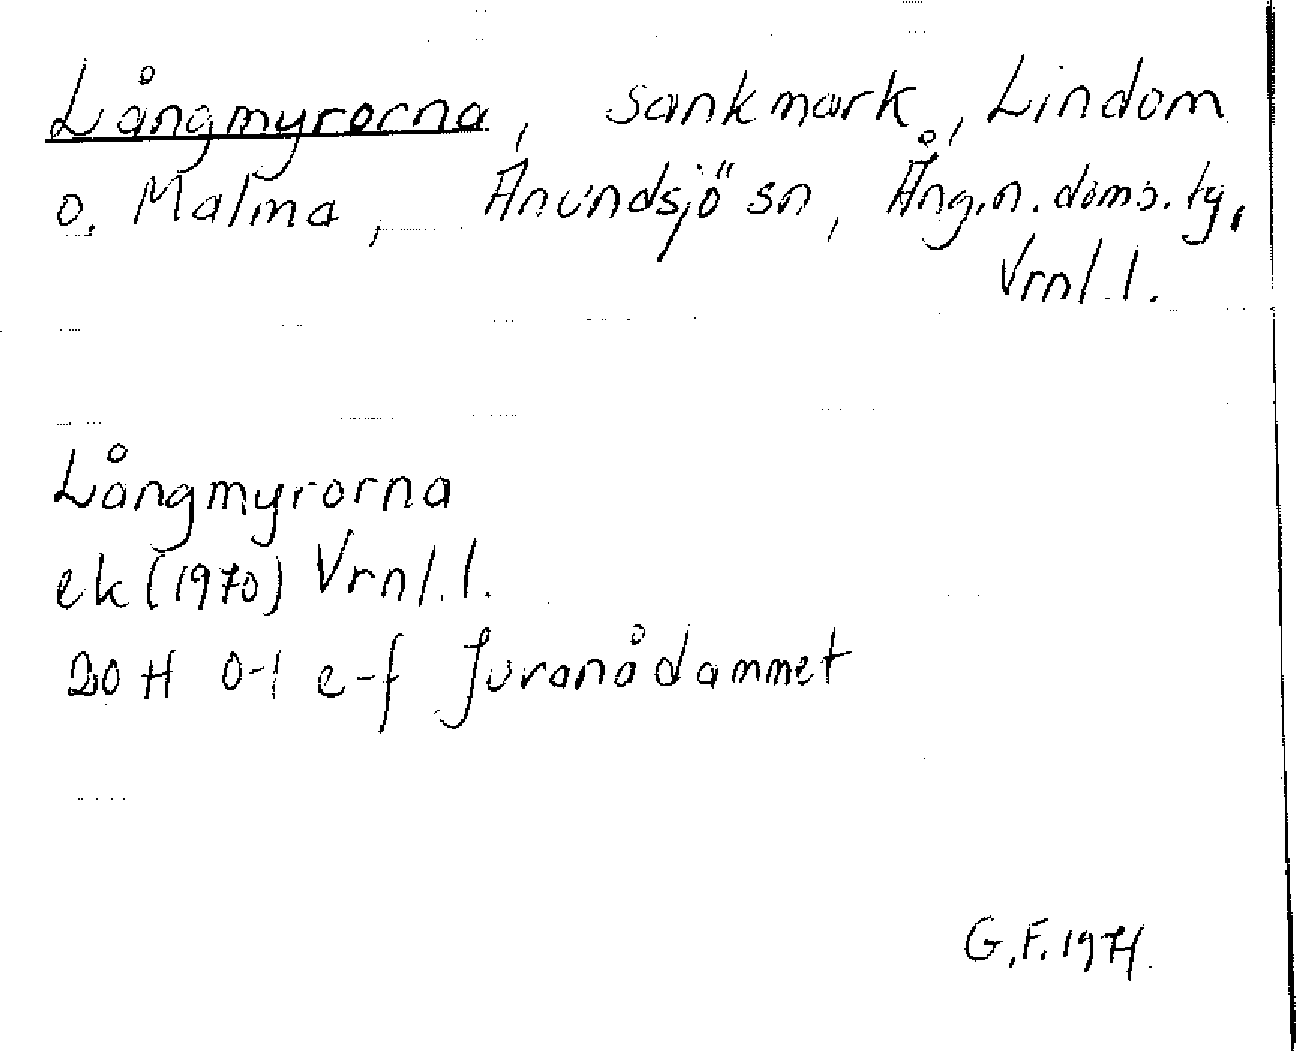 Långmyrorna, sankmark, Lindom
o. Malma, Anundsjö sn, Ång.n.doms.lg,
Vrnl.l.
Långmyrorna
ek (1970) Vrnl.l.
20 H 0-1 e-f Juvanådammet
G.F. 1971.